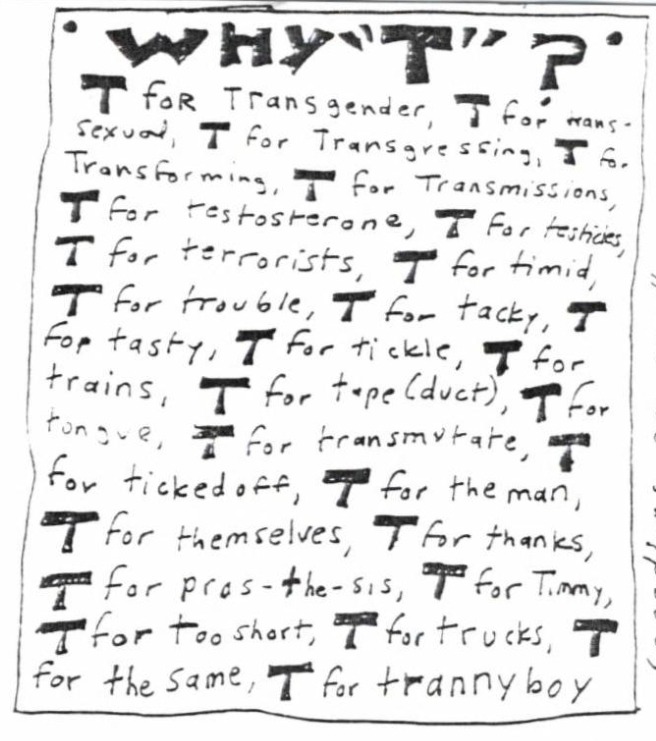 • WHY "T" ? •
T foR Transgender, T for trans-
sexual, T for Transgressing, T for
Transforming, T for Transmissions,
T for testosterone, T for testicles,
T for terrorists, T for timid,
T for trouble, T for tacky, T
for tasty, T for tickle, T for
trains, T for tape (duct), T for
tongue, T for transmutate, T
for ticked off, T for the man,
T for themselves, T for thanks,
T for pros-the-sis, T for Timmy,
T for too short, T for trucks, T
for the same, T for tranny boy